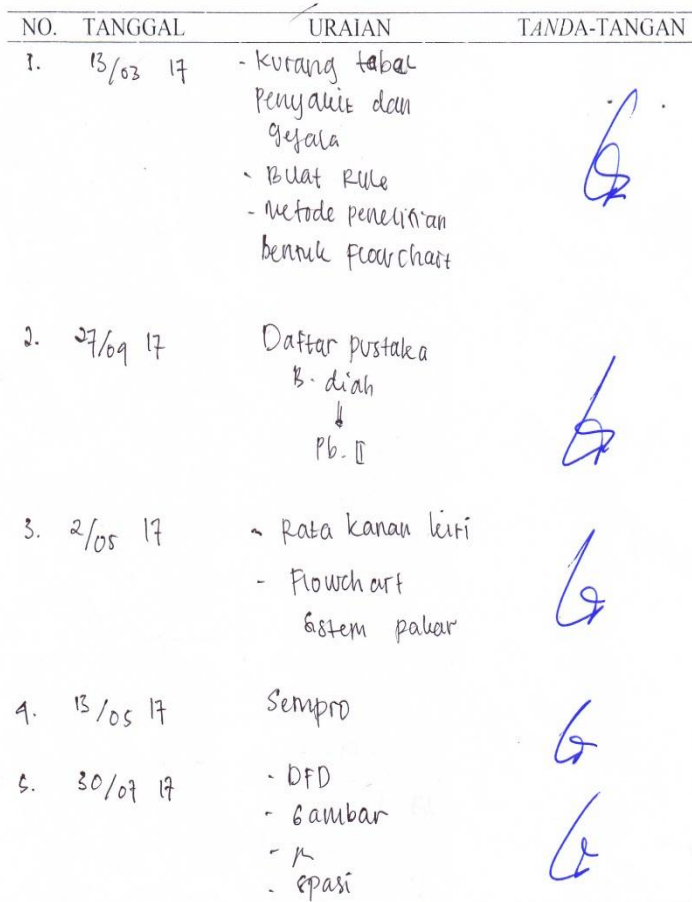 NO. TANGGAL URAIAN TANDA-TANGAN
1. 13/03 17 - Kurang tabel
Penyakit dan
gejala
- Buat Rule
- Metode penelitian
bentuk Flowchart
2. 27/09 17 Daftar pustaka
B. diah
↓
Pb. II
3. 2/05 17 - Rata kanan kiri
- Flowchart
Sistem pakar
4. 13/05 17 Sempro
5. 30/07 17 - DFD
- Gambar
- μ
- spasi